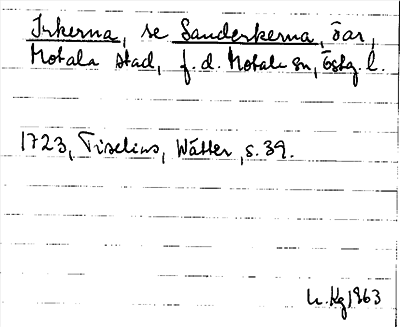 Irkerna, se Sanderkerna, öar,
Motala stad, f.d. Motala sn, Östg. l.
1723, Tiselius, Wätter, s. 39.
h. Kg 1963